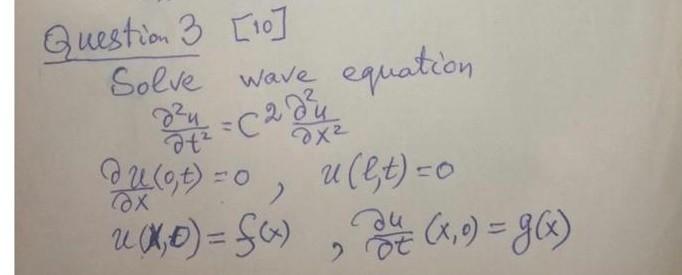 Question 3 [10]
Solve wave equation
∂²u/∂t² = C² ∂²u/∂x²
∂u/∂x (0,t) = 0 , u(l,t) = 0
u(x,0) = f(x) , ∂u/∂t (x,0) = g(x)